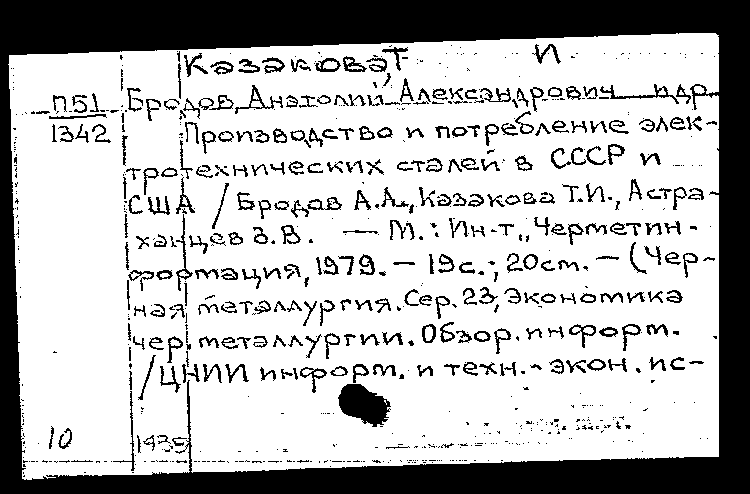 Казакова, Т И
П51 Бродов, Анатолий Александрович и др.
1342 Производство и потребление элек-
тротехнических сталей в СССР и
США / Бродов А.А., Казакова Т.И., Астра-
ханцев З.В. — М.: Ин-т „Черметин-
формация, 1979. – 19с.; 20см. – (Чер-
ная металлургия. Сер. 23, Экономика
чер. металлургии. Обзор. информ.
/ ЦНИИ информ. и техн.-экон. ис-
10 1435